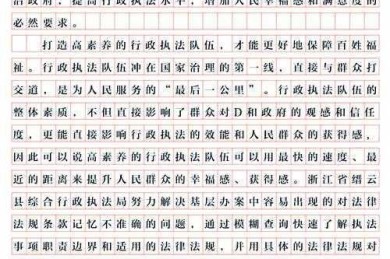 治政府，提高行政执法水平，增加人民幸福感和满意度的
必然要求。
打造高素养的行政执法队伍，才能更好地保障百姓福
祉。行政执法队伍冲在国家治理的第一线，直接与群众打
交道，是为人民服务的“最后一公里”。行政执法队伍的
整体素质，不但直接影响了群众对D和政府的观感和信任
度，更能直接影响行政执法的效能和人民群众的获得感，
因此可以说高素养的行政执法队伍可以用最快的速度、最
近的距离来提升人民群众的幸福感、获得感。浙江省缙云
县综合行政执法局努力解决基层办案中容易出现的对法律
法规条款记忆不准确的问题，通过模糊查询快速了解执法
事项职责边界和适用的法律法规，并用具体的法律法规对